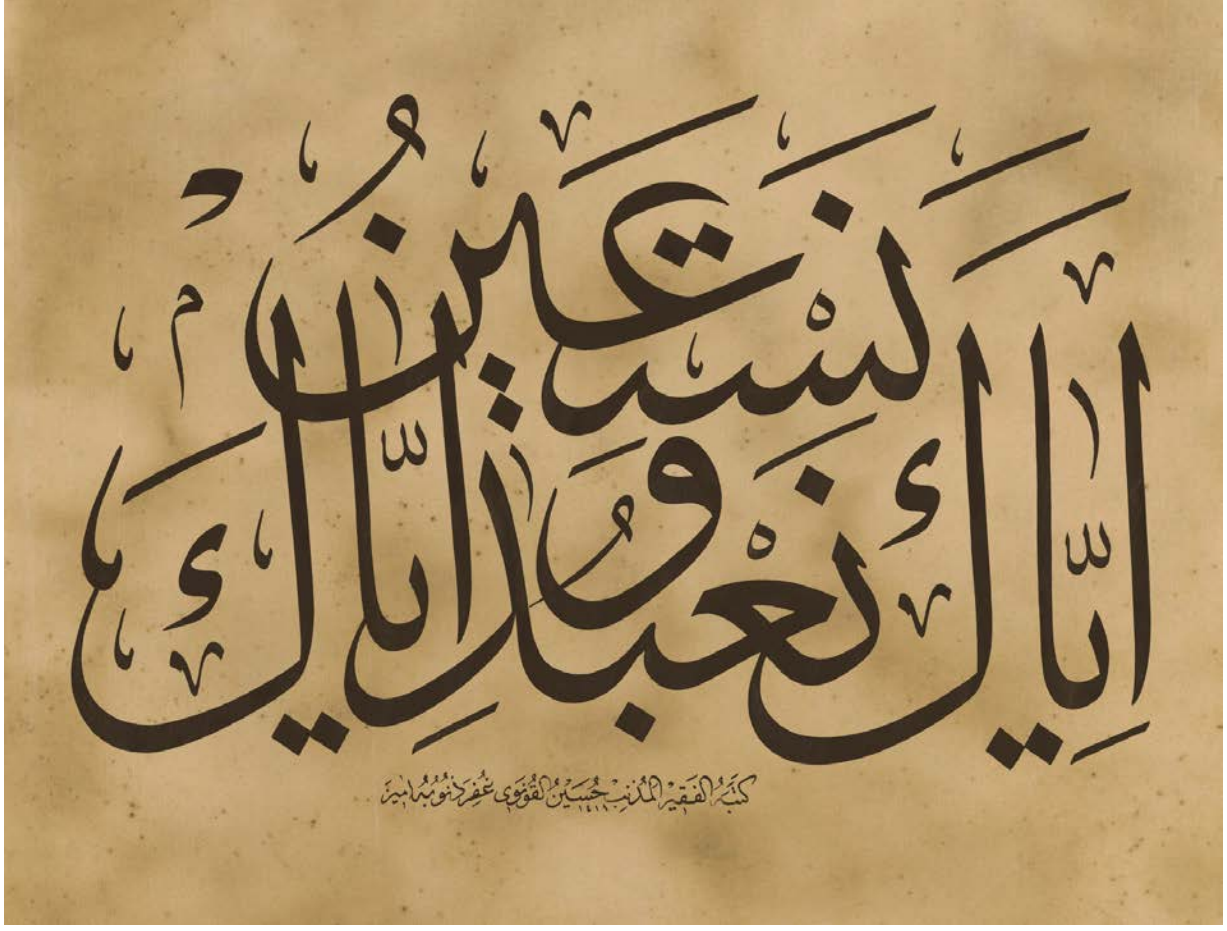 اِيَّاكَ نَعْبُدُ وَاِيَّاكَ نَسْتَعَينُ
كتبه الفقير المذنب حسين القونوى غفر ذنوبه امين ١٤١١